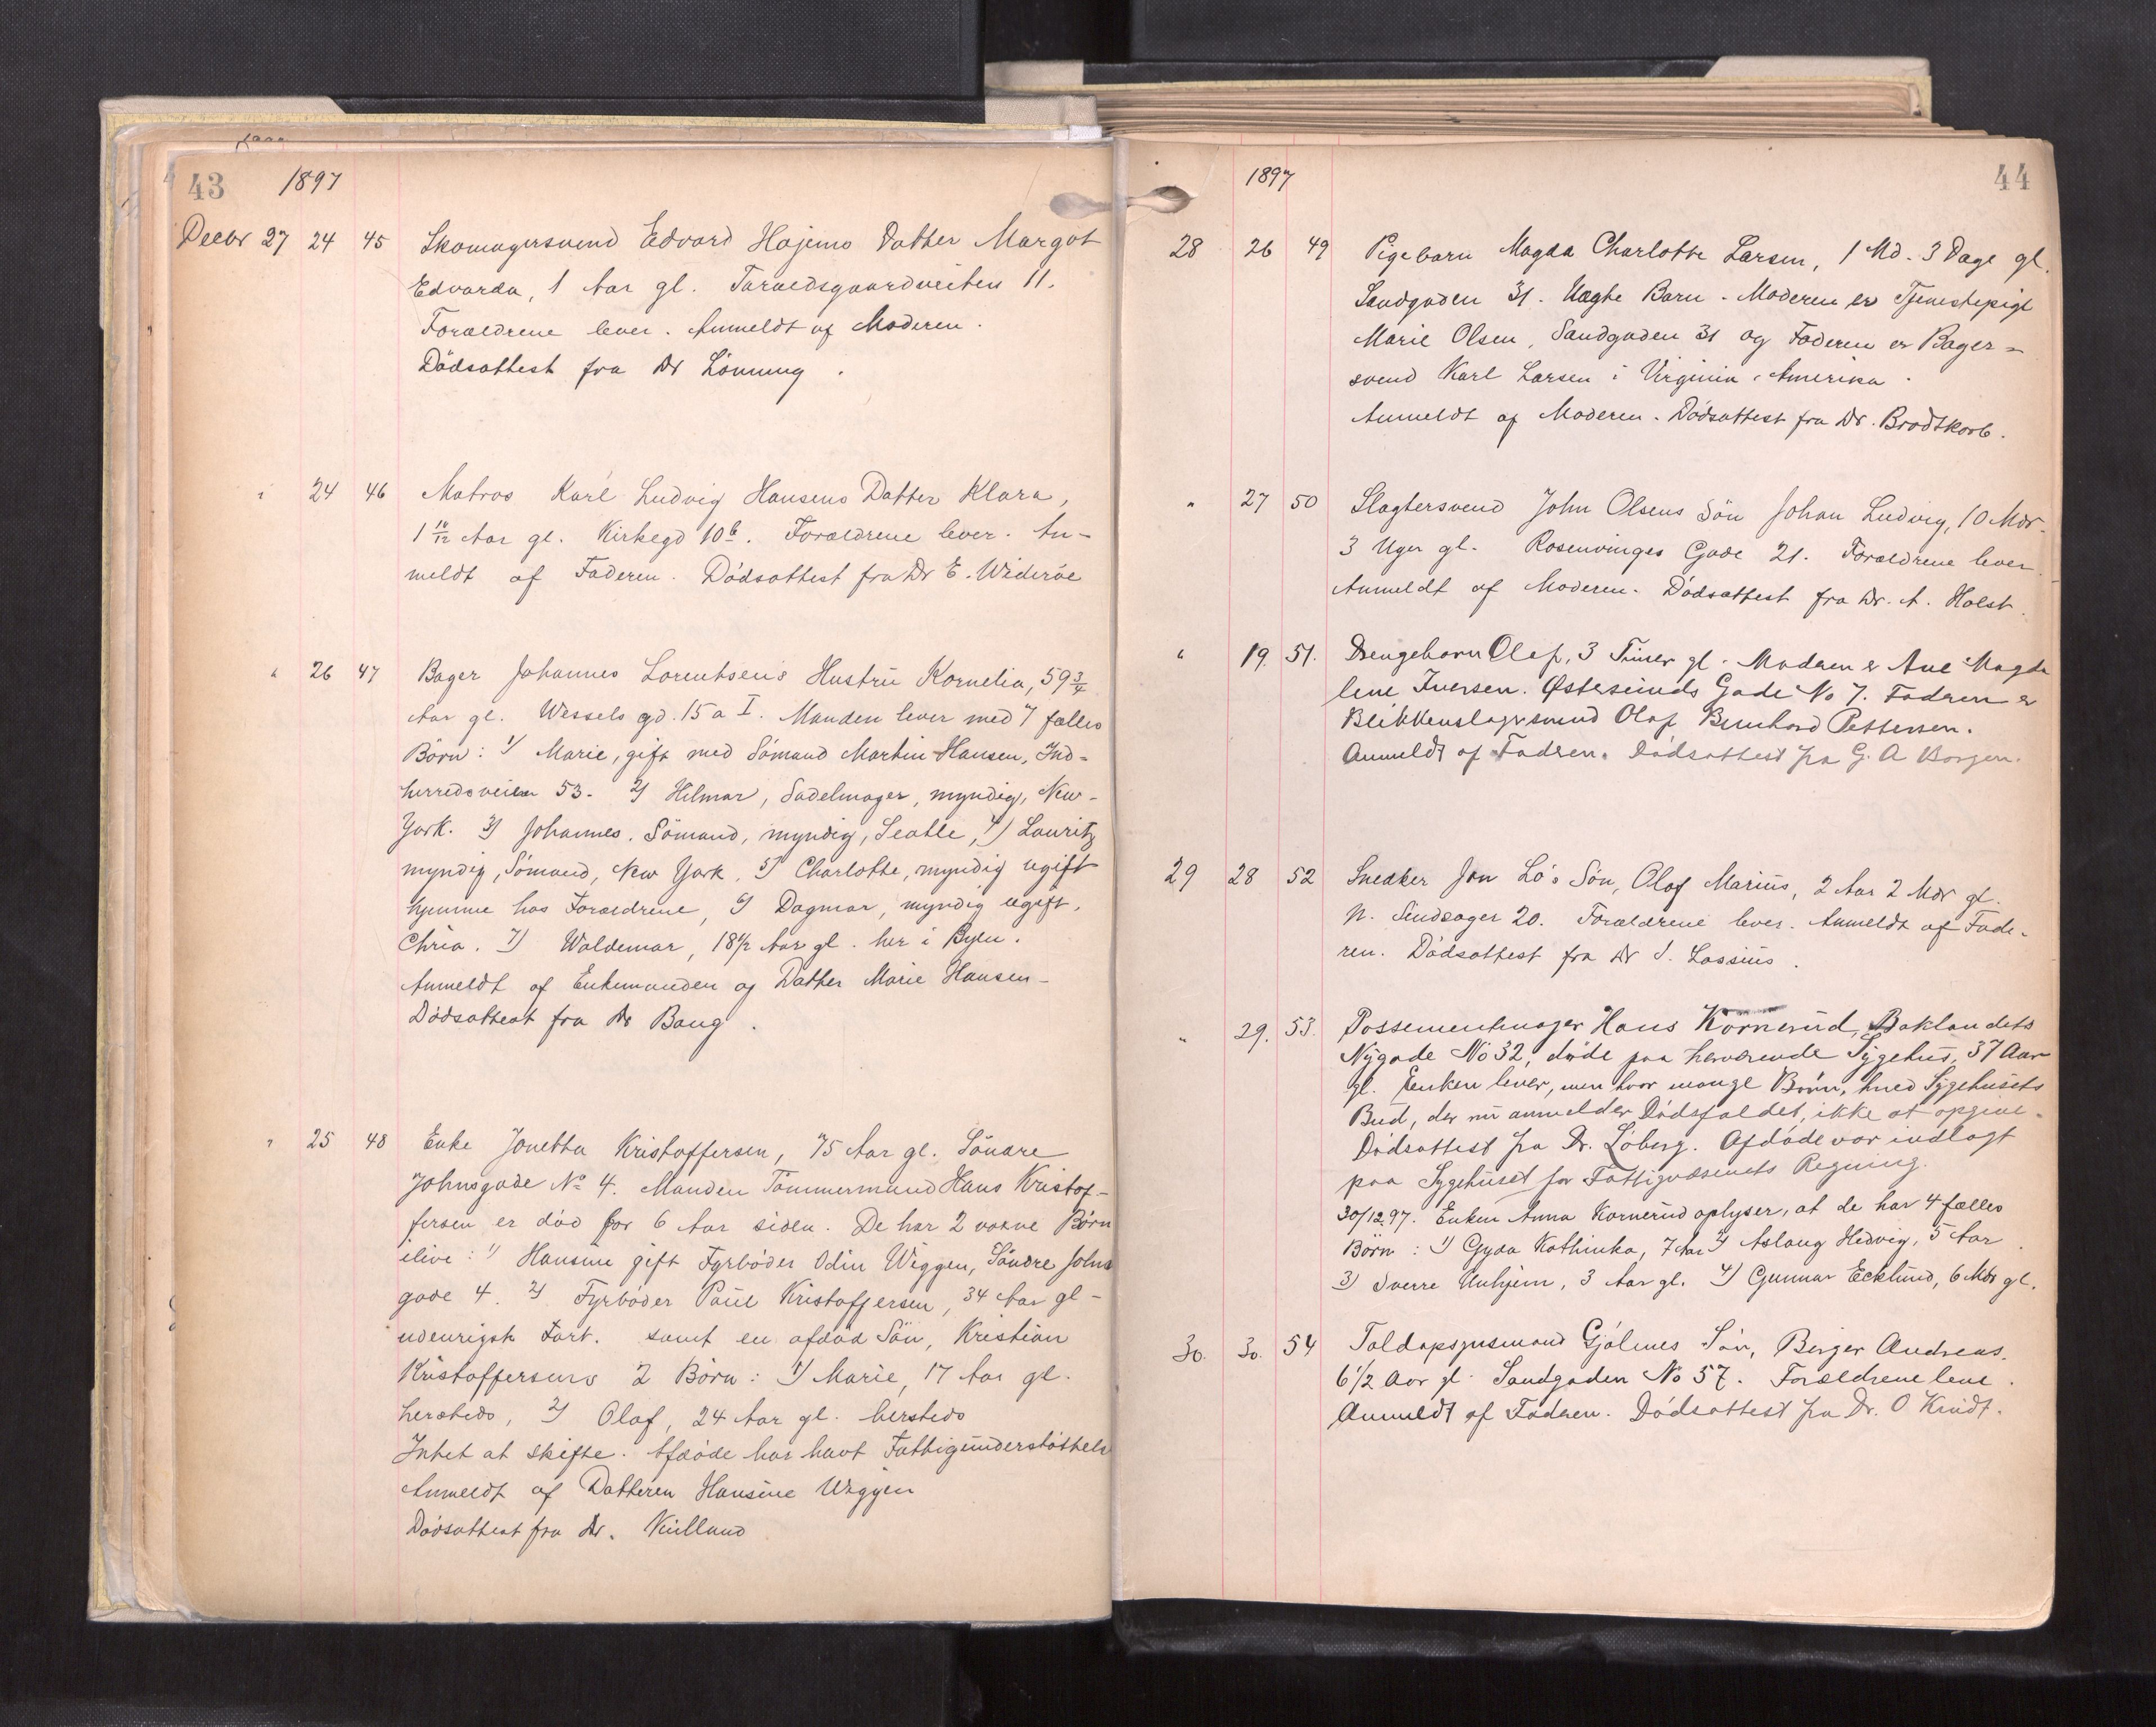 43 1897
Decbr 27 24 45 Skomagersvend Edvard Hojems Datter Margot
Edvarda, 1 Aar gl. Taraldsgaardveiten 11.
Forældrene lever. Anmeldt af Moderen.
Dödsattest fra Dr Lönning.
" 24 46 Matros Karl Ludvig Hansens Datter Klara,
1 10/12 Aar gl. Kirkegd 10 b. Forældrene lever. An-
meldt af Faderen. Dödsattest fra Dr E. Wideröe
" 26 47 Bager Johannes Lorentsens Hustru Kornelia, 59 3/4
Aar gl. Wessels gd. 15 a I. Manden lever med 7 fælles
Börn: 1) Marie, gift med Sömand Martin Hansen, Ind-
herredsveien 53. 2) Hilmar, Sadelmager, myndig, New-
York. 3) Johannes, Sömand, myndig, Seatle, 4) Lauritz
myndig, Sömand, New York, 5) Charlotte, myndig ugift
hjemme hos Forældrene, 6) Dagmar, myndig ugift,
Chria. 7) Waldemar, 18 1/2 Aar gl. her i Byen.
Anmeldt af Enkemanden og Datter Marie Hansen-
Dödsattest fra Dr Bang.
" 25 48 Enke Jonetta Kristoffersen, 75 Aar gl. Söndre
Johnsgade No 4. Manden Tömmermand Hans Kristof-
fersen er död for 6 Aar siden. De har 2 voxne Börn
ilive: 1) Hansine gift Fyrböder Odin Wiggen, Söndre Johns
gade 4. 2) Fyrböder Paul Kristoffersen, 34 Aar gl-
udenrigsk Fart. samt en afdöd Sön, Kristian
Kristoffersens 2 Börn: 1) Marie, 17 Aar gl.
hersteds, 2) Olaf, 24 Aar gl. hersteds
Intet at skifte. Afdöde har havt Fattigunderstöttelse
Anmeldt af Datteren Hansine Wiggen
Dödsattest fra Dr. Kielland
1897 44
28 26 49 Pigebarn Magda Charlotte Larsen, 1 Md. 3 Dage gl.
Sandgaden 31. Uægte Barn. Moderen er Tjenestepige
Marie Olsen, Sandgaden 31 og Faderen er Bager-
svend Karl Larsen i Virginia, Amerika.
Anmeldt af Moderen. Dödsattest fra Dr. Brodtkorb.
" 27 50 Slagtersvend John Olsens Sön Johan Ludvig, 10 Mdr.
3 Uger gl. Rosenvinges Gade 21. Forældrene lever.
Anmeldt af Moderen. Dödsattest fra Dr. A. Holst.
" 19. 51. Drengebarn Olaf, 3 Timer gl. Moderen er Ane Magda
lene Iversen. Østersunds Gade No 7. Faderen er
Blikkenslagersvend Olaf Bernhard Pettersen.
Anmeldt af Faderen. Dödsattest fra G. A Borgen.
29 28 52 Snedker Jon Lö's Sön, Olaf Marius, 2 Aar 2 Mdr gl.
N. Sindsager 20. Forældrene lever. Anmeldt af Fade-
ren. Dödsattest fra Dr I. Lossius.
" 29. 53. Possementmager Hans Kornerud, Baklandets
Nygade No 32, döde paa herværende Sygehus, 37 Aar
gl. Enken lever, men hvor mange Börn, hved Sygehusets
Bud, der nu anmelder Dödsfaldet, ikke at opgive.
Dödsattest fra Dr. Löberg. Afdöde var indlagt
paa Sygehuset for Fattigvæsenets Regning.
30/12 97. Enken Anna Kornerud oplyser, at de har 4 fælles
Börn: 1) Gyda Kathinka, 7 Aar 2) Aslaug Hedvig, 5 Aar
3) Sverre Unhjem, 3 Aar gl. 4) Gunnar Ecklund, 6 Mdr gl.
30. 30. 54 Toldopsynsmand Gjölmes Sön, Birger Andreas.
6 1/2 Aar gl. Sandgaden No 57. Forældrene leve.
Anmeldt af Faderen. Dödsattest fra Dr. O Kindt.